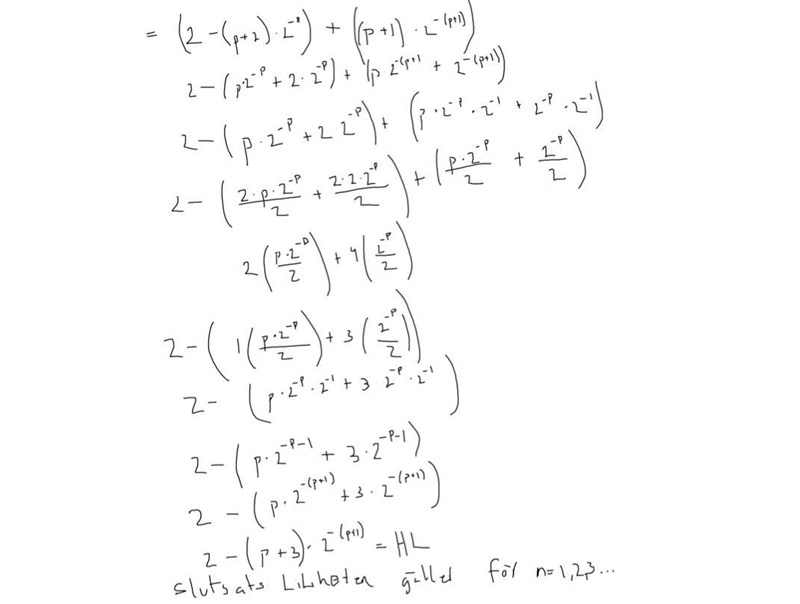 = (2 - (p+2) · 2^-p) + ((p+1) · 2^-(p+1))
2 - (p2^-p + 2 · 2^-p) + (p 2^-(p+1 + 2^-(p+1))
2 - (p · 2^-p + 2 2^-p) + (p · 2^-p · 2^-1 + 2^-p · 2^-1)
2 - (2·p·2^-p/2 + 2·2·2^-p/2) + (p·2^-p/2 + 2^-p/2)
2(p·2^-p/2) + 4(2^-p/2)
2 - (1(p·2^-p/2) + 3(2^-p/2))
2 - (p·2^-p · 2^-1 + 3 · 2^-p · 2^-1)
2 - (p · 2^-p-1 + 3 · 2^-p-1)
2 - (p · 2^-(p+1) + 3 · 2^-(p+1))
2 - (p+3) · 2^-(p+1) = HL
Slutsats Likheten gäller för n=1,2,3...